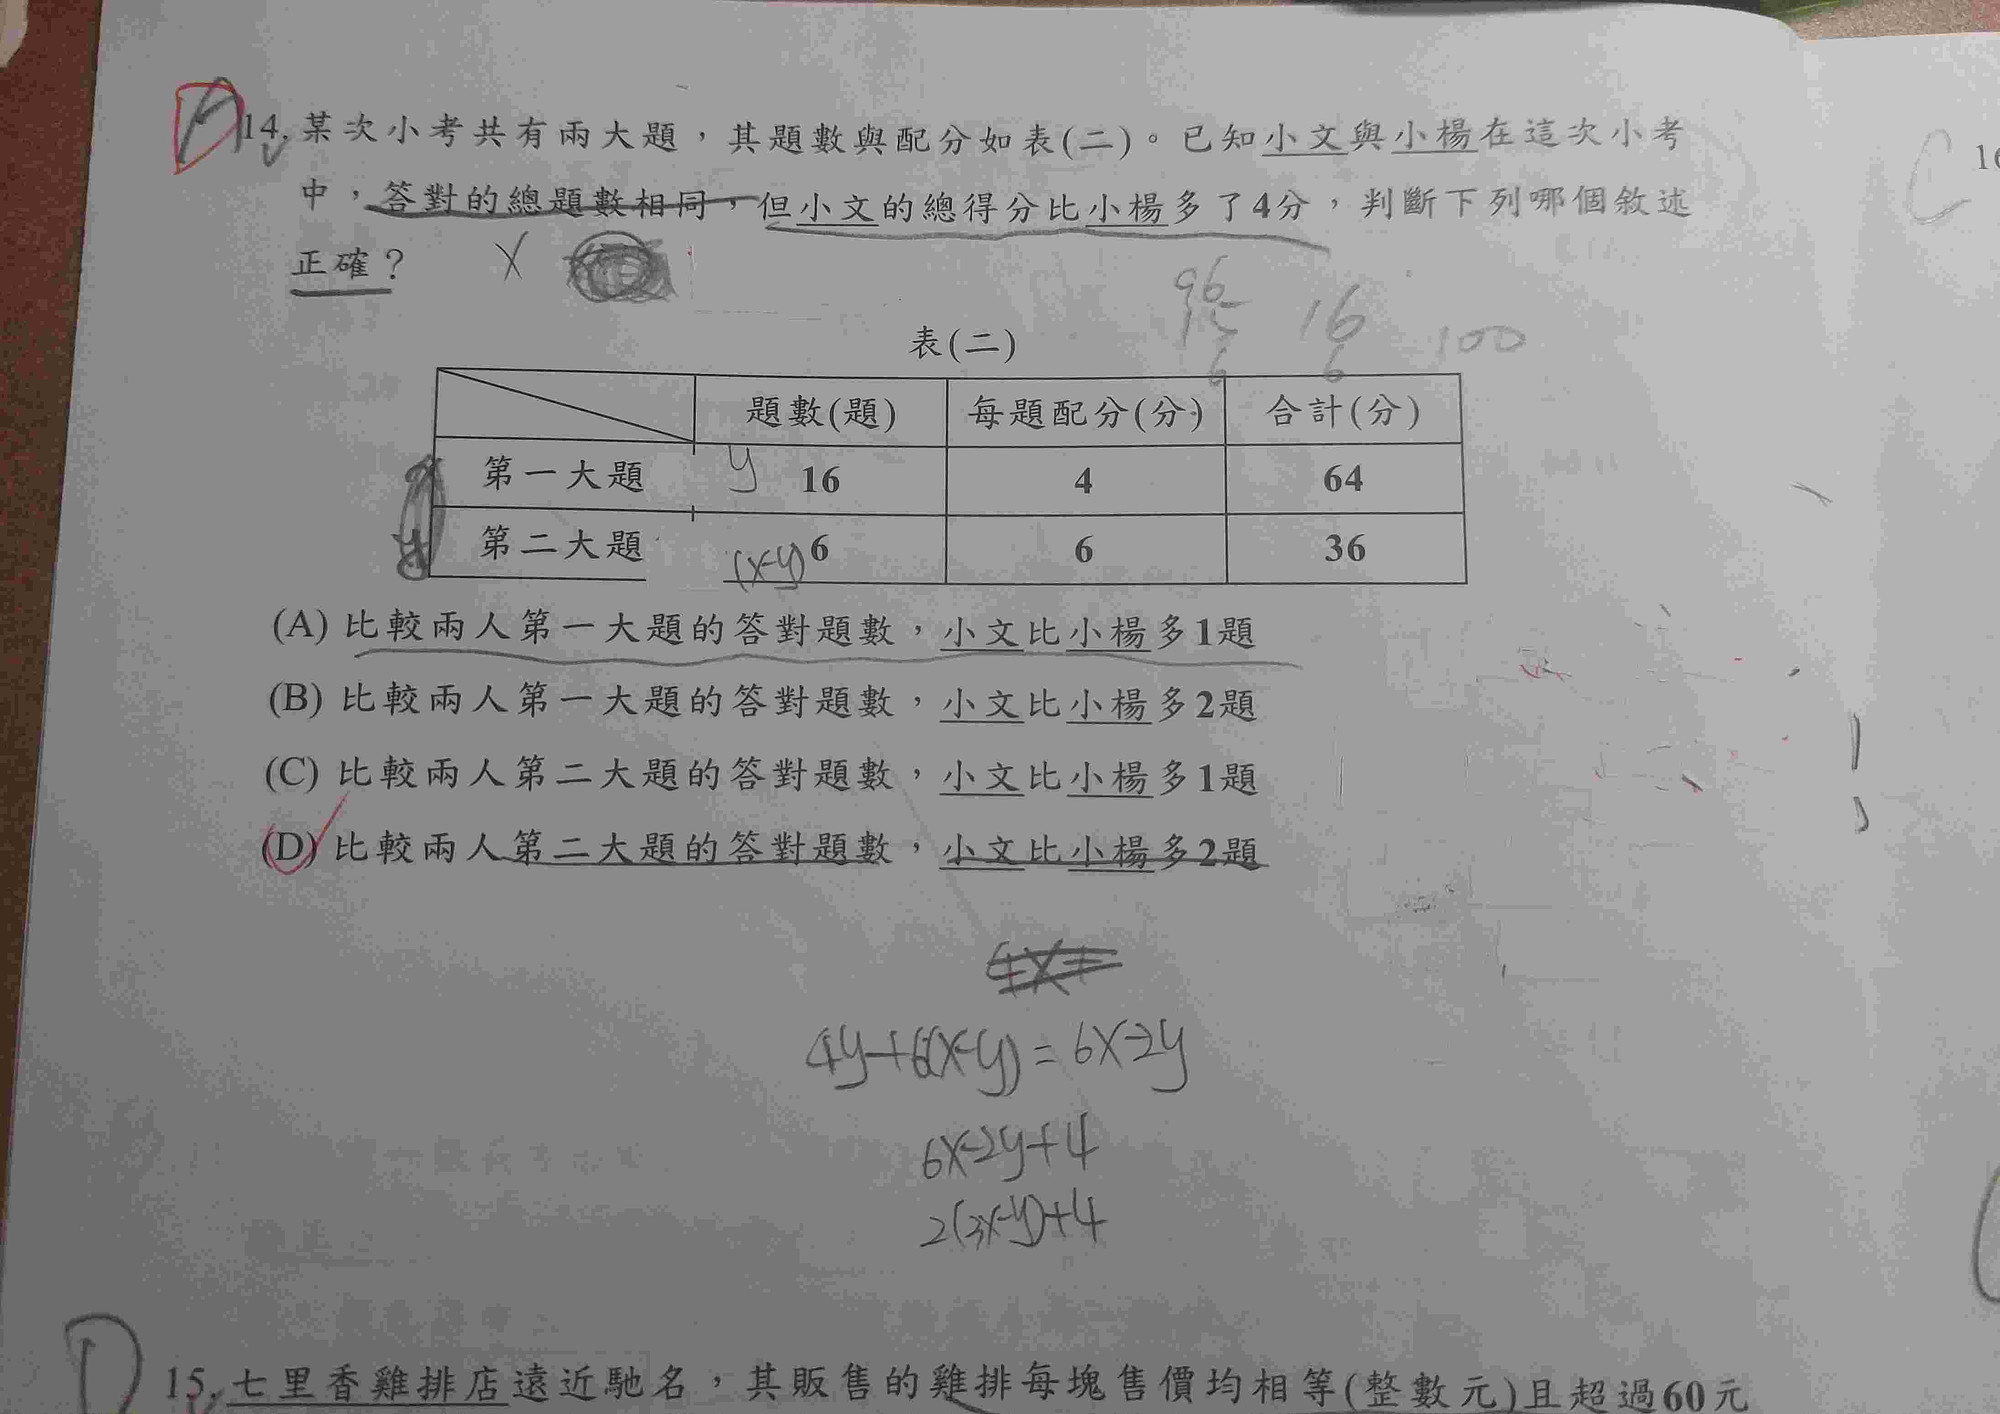 14. 某次小考共有兩大題，其題數與配分如表(二)。已知小文與小楊在這次小考
中，答對的總題數相同，但小文的總得分比小楊多了4分，判斷下列哪個敘述
正確？
X
96 16 100
6 6
表(二)
題數(題) 每題配分(分) 合計(分)
第一大題 y 16 4 64
第二大題 (x-y) 6 6 36
(A) 比較兩人第一大題的答對題數，小文比小楊多1題
(B) 比較兩人第一大題的答對題數，小文比小楊多2題
(C) 比較兩人第二大題的答對題數，小文比小楊多1題
(D) 比較兩人第二大題的答對題數，小文比小楊多2題
4y+6(x-y)=6x-2y
6x-2y+4
2(3x-y)+4
D 15. 七里香雞排店遠近馳名，其販售的雞排每塊售價均相等(整數元)且超過60元